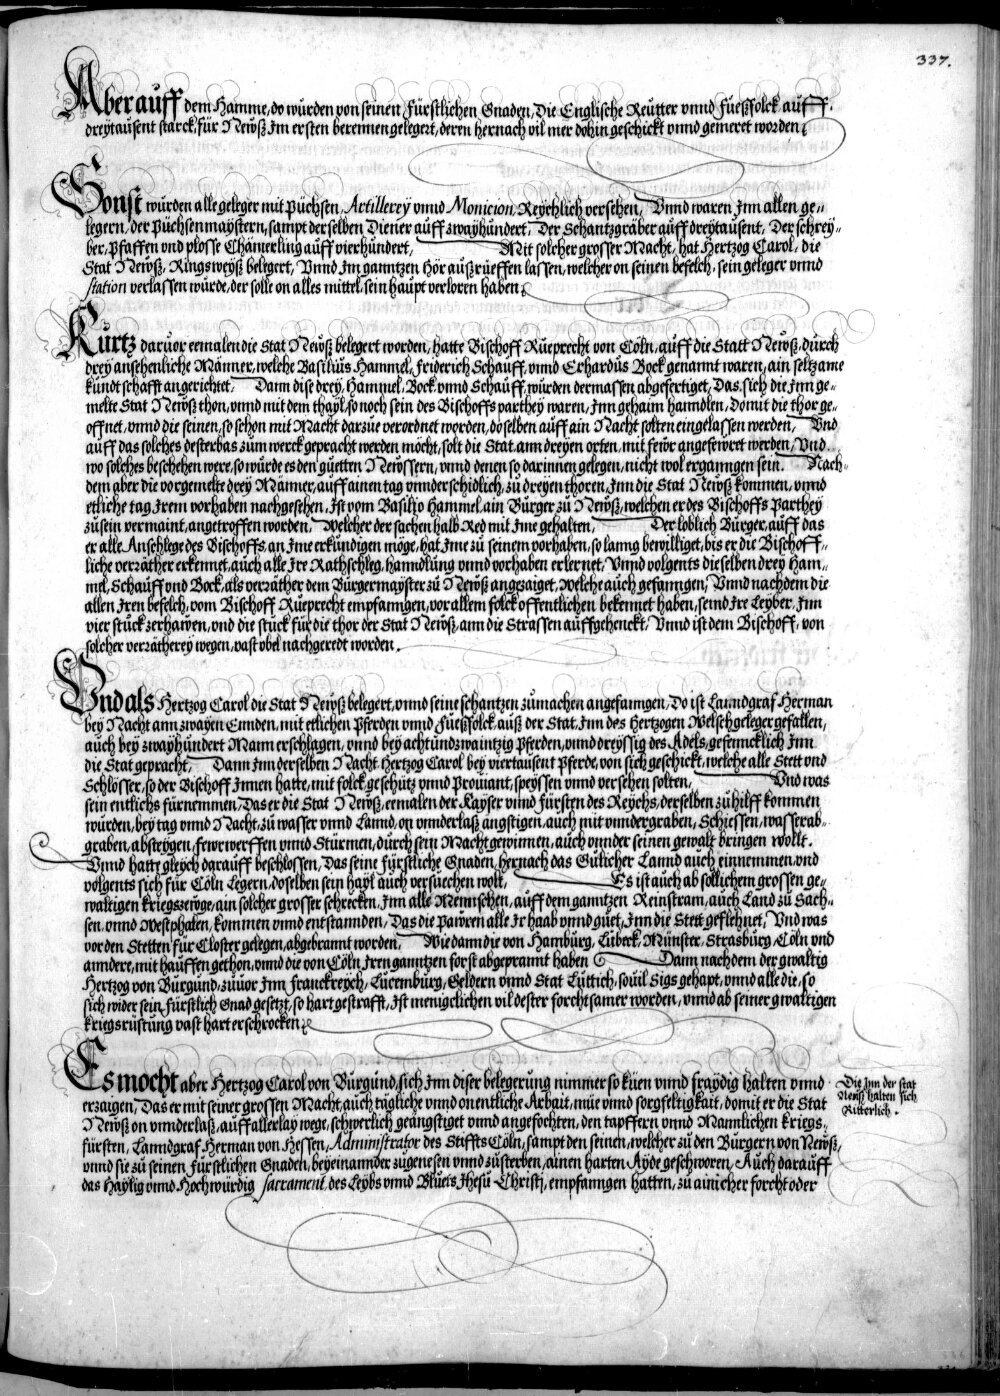 337.
Aber auff dem Hamme, do wurden von seinen Fürstlichen Gnaden, Die Englische Reutter vnnd Fueßfolck auff
dreytausent starck, für Newß Im ersten berennen gelegert, deren hernach vil mer dohin geschickt vnnd gemeret worden.
Sonst wurden alle geleger mit Püchsen, Artillerey vnnd Monicion, Reychlich versehen, Vnnd waren Inn allen ge„
legern, der Püchsenmaystern, sampt derselben Diener auff zwayhundert, Der Schantzgräber auff dreytausent, Der schrey„
ber, Pfaffen vnd plosse Chämerling auff vierhundert, Mit solcher grosser Macht, hat Hertzog Carol, die
Stat Newß, Ringsweyß belegert, Vnnd Im ganntzen Hör außrüeffen lassen, welcher on seinen befelch, sein geleger vnnd
station verlassen wurde, der solle on alles mittel, sein haupt verloren haben.
Kurtz daruor eemalen die Stat Newß belegert worden, hatte Bischoff Rueprecht von Cöln, auff die Statt Newß, durch
drey ansehenliche Männer, welche Basilius Hammel, Friderich Schauff, vnnd Erhardus Bock genannt waren, ain seltzame
kundtschafft angerichtet, Dann dise drey, Hammel, Bock vnnd Schauff, wurden dermassen abgefertiget, Das, sich die Inn ge„
melte Stat Newß thon, vnnd mit dem thayl, so noch sein des Bischoffs parthey waren, Inn gehaim hanndlen, Domit die thor ge„
offnet, vnnd die seinen, so schon mit Macht darzue verordnet worden, doselben auff ain Nacht solten eingelassen werden, Vnd
auff das solches desterbas zum werck gepracht werden möcht, solt die Stat ann dreyen orten, mit fewr angefewret werden, Vnd
wo solches beschehen were, so wurde es den guetten Newssern, vnnd denen so darinnen gelegen, nicht wol erganngen sein. Nach„
dem aber die vorgemelte drey Männer, auff ainen tag vnnderschidlich, zu dreyen thoren, Inn die Stat Newß kommen, vnnd
etliche tag Irem vorhaben nachgesehen, Ist vom Basilio Hammel, ain Burger zu Newß, welchen er des Bischoffs Parthey
zu sein vermaint, angetroffen worden, Welcher der sachen halb Red mit Ime gehalten, Der loblich Burger, auff das
er alle Anschlege des Bischoffs, an Ime erkundigen möge, hat Ime zu seinem vorhaben, so lanng bewilliget, bis er die Bischoff„
liche verräther erkennet, auch alle Ire Rathschleg, hanndlung vnnd vorhaben erlernet, Vnnd volgents dieselben drey Ham„
mel, Schauff vnd Bock, als verräther dem Burgermayster zu Newß angezaiget, Welche auch gefanngen, Vnnd nachdem die
allen Iren befelch, vom Bischoff Rueprecht empfanngen, vor allem folck offentlichen bekennet haben, seind Ire Leyber, Inn
vier stuck zerhawen, vnd die stuck für die thor der Stat Newß, ann die Strassen auffgehenckt, Vnnd ist dem Bischoff, von
solcher verrätherey wegen, vast vbel nachgeredt worden.
Vnd als Hertzog Carol die Stat Newß belegert, vnnd seine schantzen zumachen angefanngen, Do ist Lanndgraf Herman
bey Nacht ann zwayen Ennden, mit etlichen Pferden vnnd Fueßfolck, auß der Stat, Inn des Hertzogen Welschgeleger gefallen,
auch bey zwayhundert Mann erschlagen, vnnd bey achtundzwaintzig Pferden, vnnd dreyssig des Adels, gefenncklich Inn
die Stat gepracht, Dann Inn derselben Nacht Hertzog Carol bey viertausent Pferde, von sich geschickt, welche alle Stett vnd
Schlösser, so der Bischoff Innen hatte, mit folck geschütz vnnd Prouiant, speyssen vnnd versehen solten, Vnd was
sein entlichs fürnemmen, Das er die Stat Newß, eemalen der Kayser vnnd Fürsten des Reychs, derselben zu hilff kommen
wurden, bey tag vnnd Nacht, zu wasser vnnd Lannd, on vnnderlaß ängstigen, auch mit vnndergraben, Schiessen, wasserab„
graben, absteygen, fewrwerffen vnnd Stürmen, durch sein Macht gewinnen, auch vnnder seinen gewalt bringen wollt.
Vnnd hatte gleych darauff beschlossen, Das seine Fürstliche Gnaden, hernach das Gülicher Lannd auch einnemmen, vnd
volgents sich für Cöln Legern, doselben sein hayl auch versuechen wolt, Es ist auch ab sollichem grossen ge„
waltigen kriegszewge, ain solcher grosser schrecken, Inn alle Mennschen, auff dem ganntzen Reinstram, auch Land zu Sach„
sen, vnnd Westphalen, kommen vnnd entstannden, Das die Pawren alle Ir haab vnnd guet, Inn die Stett geflehnet, Vnd was
vor den Stetten für Closter gelegen, abgebrannt worden, Wie dann die von Hamburg, Lübeck, Münster, Strasburg, Cöln vnd
anndere, mit hauffen gethon, vnnd die von Cöln Iren ganntzen forst abgeprannt haben Dann nachdem der gwaltig
Hertzog von Burgund, zuuor Inn Franckreych, Lucemburg, Geldern vnnd Stat Lüttich, souil Sigs gehapt, vnnd alle die, so
sich wider sein Fürstlich Gnad gesetzt, so hart gestrafft, Ist menigclichen vil dester forchtsamer worden, vnnd ab seiner gwaltigen
kriegsrüstung vast hart erschrocken.
Es mocht aber Hertzog Carol von Burgund, sich Inn diser belegerung nimmer so küen vnnd fraydig halten vnnd
erzaigen, Das er mit seiner grossen Macht, auch tägliche vnnd onentliche Arbait, müe vnnd sorgfeltigkait, domit er die Stat
Newß on vnnderlaß, auff allerlay wege, schwerlich geängstiget vnnd angefochten, den tapffern vnnd Mannlichen kriegs„
fürsten, Lanndgraf Herman von Hessen, Administrator des Stiffts Cöln, sampt den seinen, welcher zu den Burgern von Newß,
vnnd sie zu seinen Fürstlichen Gnaden, beyeinannder zugenesen vnnd zusterben, ainen harten Ayde geschworen, Auch darauff
das Haylig vnnd Hochwürdig sacrament, des Leybs vnnd Bluets Jhesu Christi, empfanngen hatten, zu ainicher forcht oder
Die Inn der stat
Newß halten sich
Ritterlich.